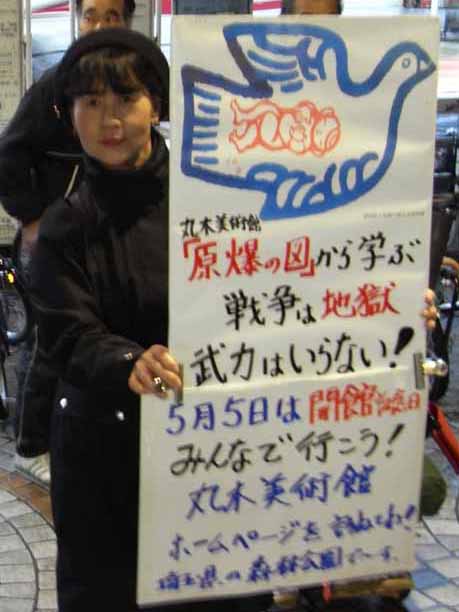 丸木美術館
「原爆の図」から学ぶ
戦争は地獄
武力はいらない!
5月5日は開館記念日
みんなで行こう!
丸木美術館
ホームページを訪ねてね!
埼玉県の森林公園です。